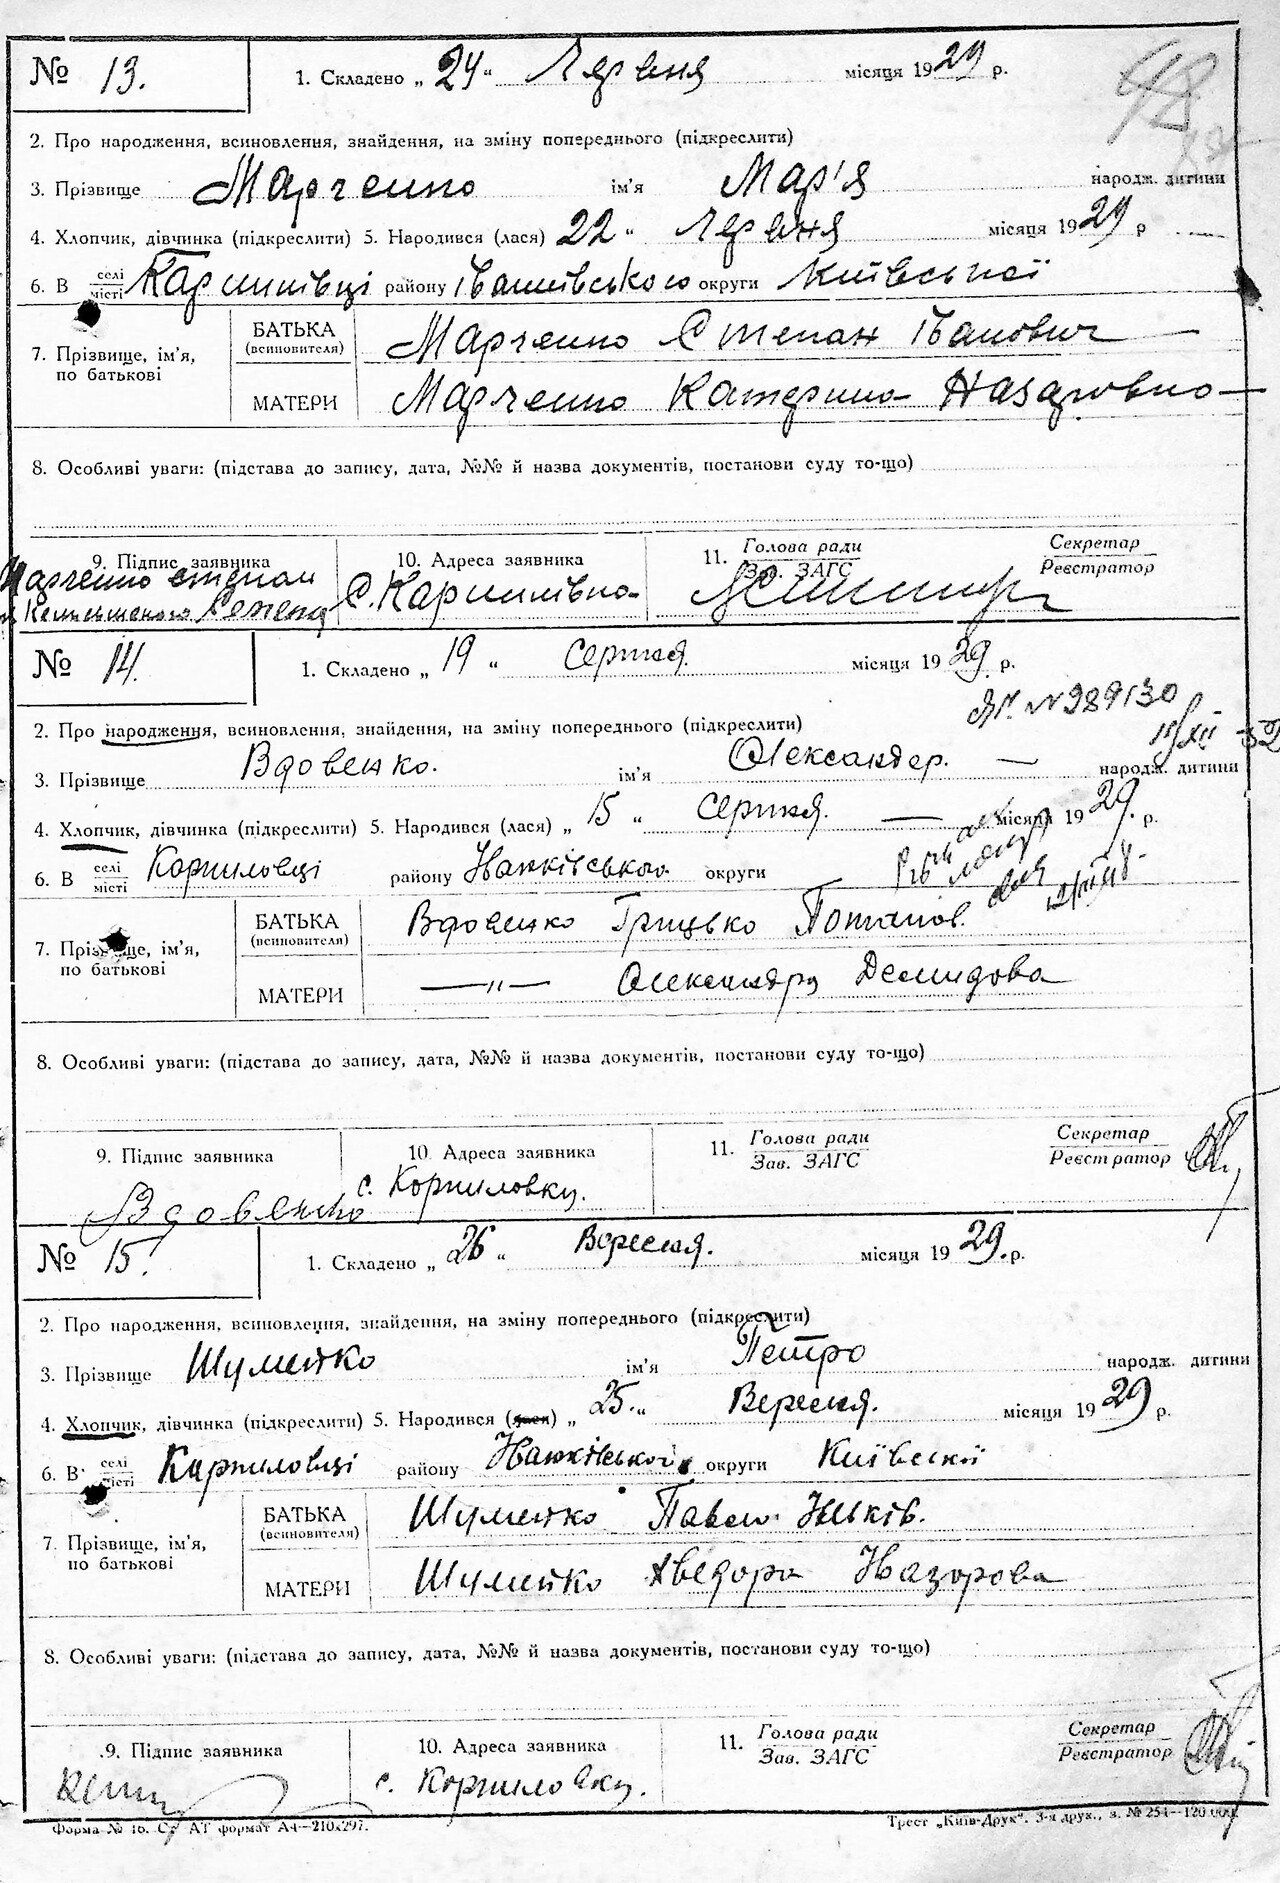 № 13. 1. Складено „ 24 “ Червня місяця 1929 р.
48
2. Про народження, всиновлення, знайдення, на зміну попереднього (підкреслити)
3. Прізвище Марченко ім'я Мар'я народж. дитини
4. Хлопчик, дівчинка (підкреслити) 5. Народився (лася) 22 “ Червня місяця 1929 р
6. В селі місті району округи Київської
7. Прізвище, ім'я, по батькові
БАТЬКА (всиновителя) Марченко Степан Іванович
МАТЕРИ Марченко Катерина Назаровна
8. Особливі уваги: (підстава до запису, дата, №№ й назва документів, постанови суду то-що)
9. Підпис заявника 10. Адреса заявника 11. Голова ради Зав. ЗАГС Секретар Реєстратор
Марченко степан с. Карпилівка
№ 14. 1. Складено „ 19 “ серпня. місяця 1929 р.
N 989130
2. Про народження, всиновлення, знайдення, на зміну попереднього (підкреслити)
3. Прізвище Вдовенко. ім'я Олександер. — народж. дитини
4. Хлопчик, дівчинка (підкреслити) 5. Народився (лася) „ 15 “ серпня. — місяця 1929. р.
6. В селі місті Корпиловці району округи
7. Прізвище, ім'я, по батькові
БАТЬКА (всиновителя) Вдовенко Грицько Потапов.
МАТЕРИ —„— Олександра Демидова
8. Особливі уваги: (підстава до запису, дата, №№ й назва документів, постанови суду то-що)
9. Підпис заявника 10. Адреса заявника 11. Голова ради Зав. ЗАГС Секретар Реєстратор
Вдовенко с. Корпиловку.
№ 15. 1. Складено „ 26 “ Вересня. місяця 1929. р.
2. Про народження, всиновлення, знайдення, на зміну попереднього (підкреслити)
3. Прізвище Шумейко ім'я Петро народж. дитини
4. Хлопчик, дівчинка (підкреслити) 5. Народився (лася) „ 25. “ Вересня. місяця 1929 р.
6. В селі місті Карпиловці району округи
7. Прізвище, ім'я, по батькові
БАТЬКА (всиновителя) Шумейко Павло
МАТЕРИ Шумейко Хведора Назорова
8. Особливі уваги: (підстава до запису, дата, №№ й назва документів, постанови суду то-що)
9. Підпис заявника 10. Адреса заявника 11. Голова ради Зав. ЗАГС Секретар Реєстратор
с. Корпиловку.
Форма № 16. АТ формат А4—210х297. Трест „Київ-Друк“. 3-я друк., з. № 254—120.000.